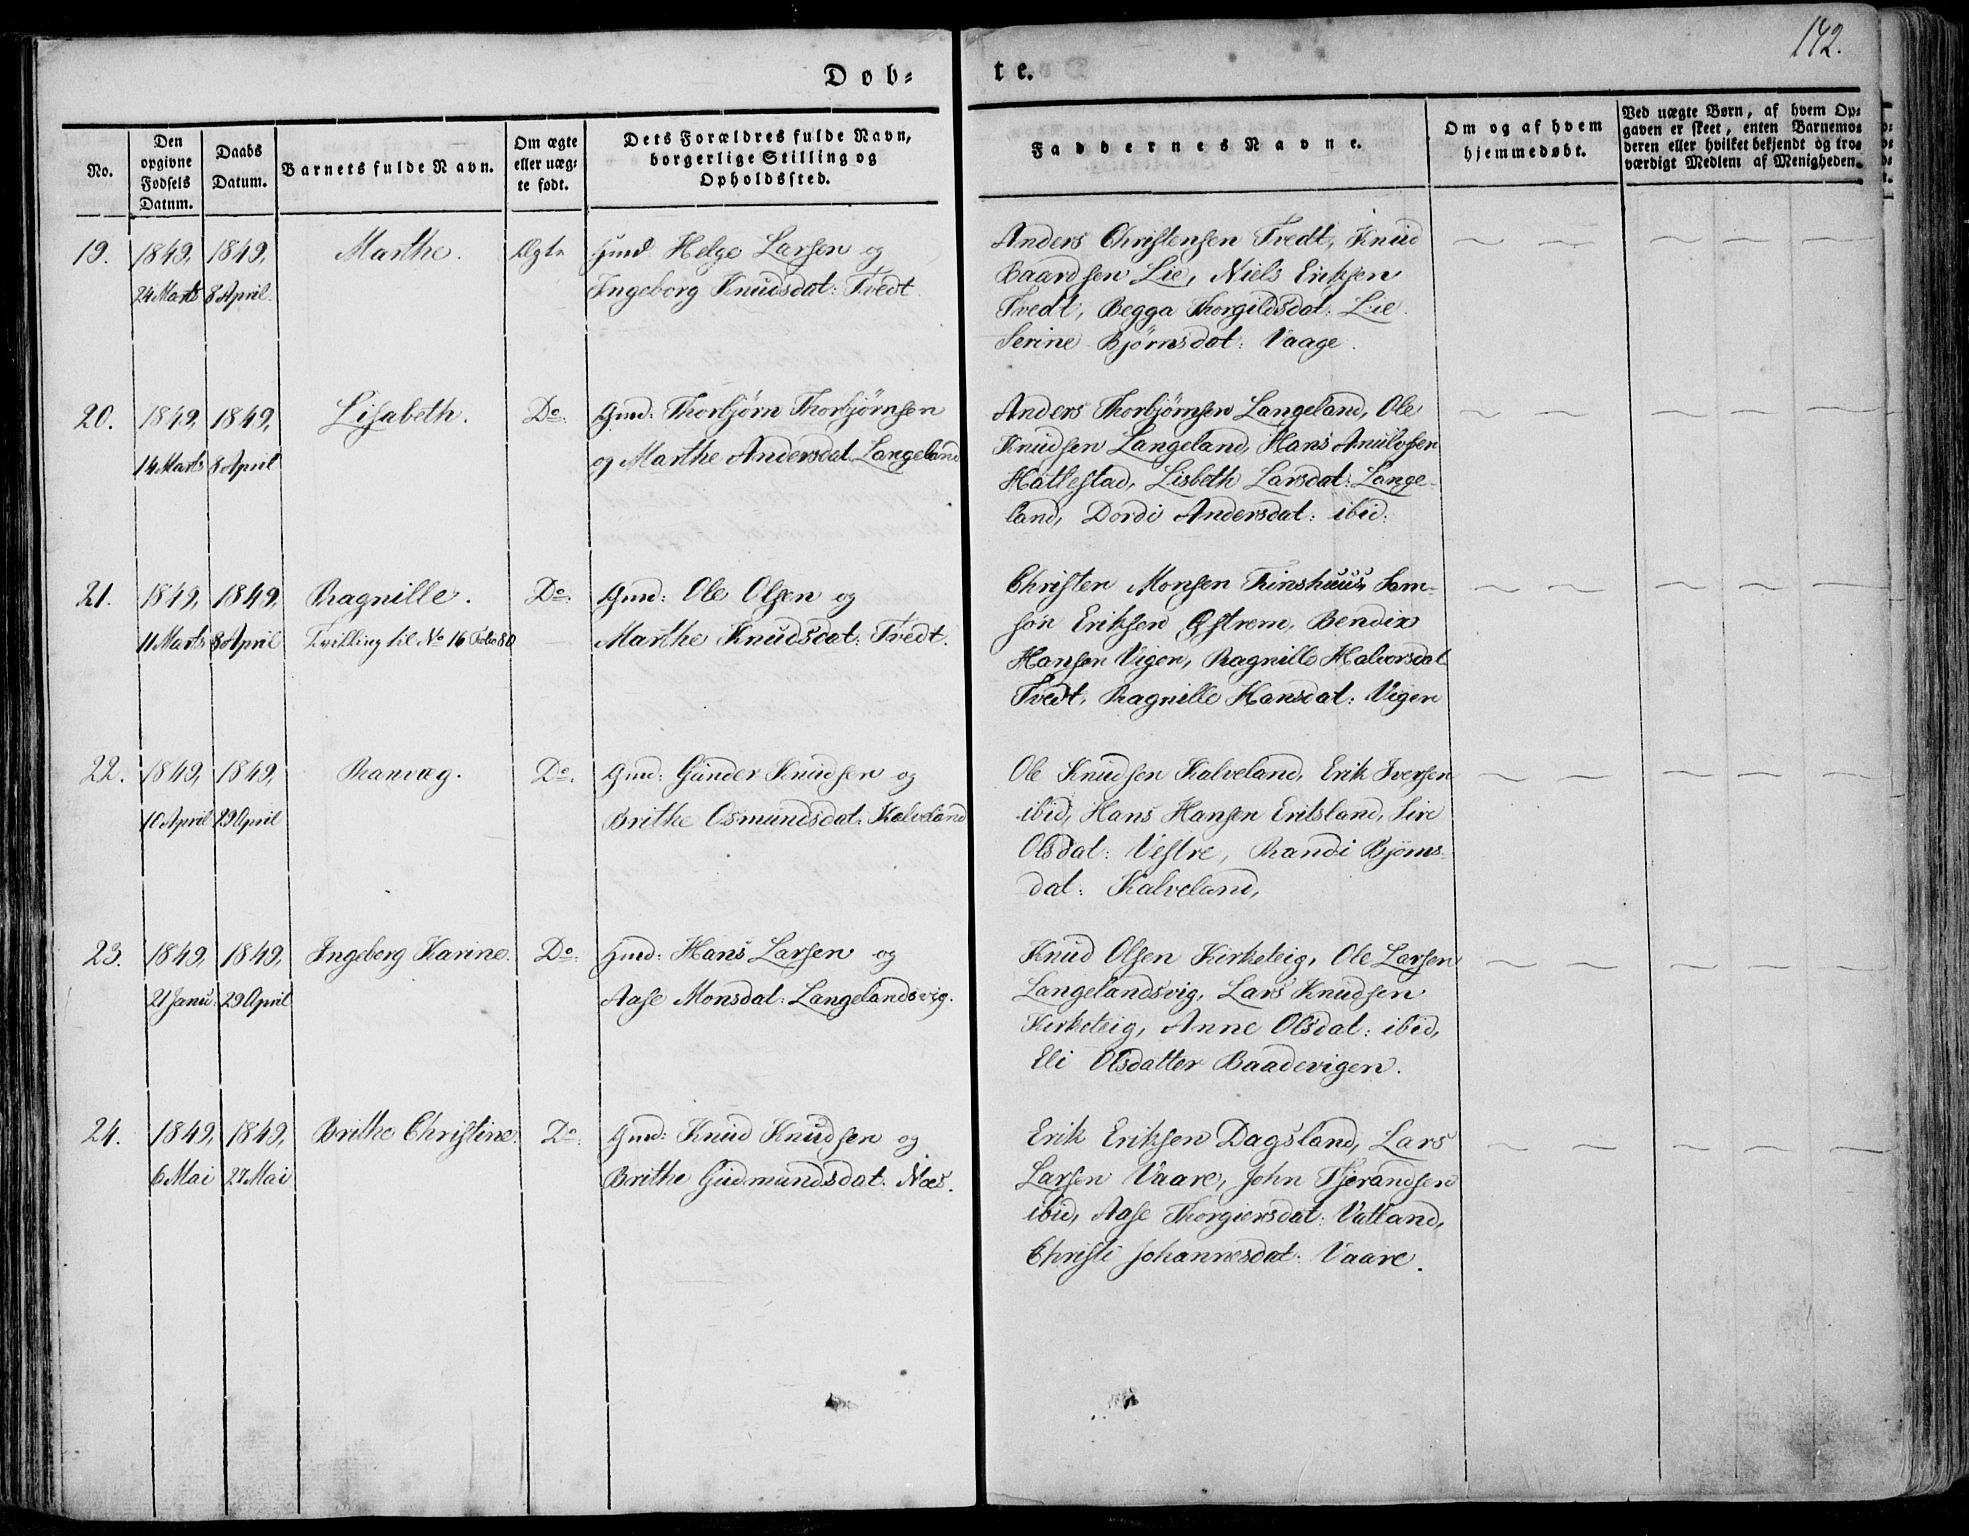 142.
Døb=
te.
No.
Den opgivne Fødsels Datum.
Daabs Datum.
Barnets fulde Navn.
Om ægte eller uægte født.
Dets Forældres fulde Navn, borgerlige Stilling og Opholdssted.
Faddernes Navne.
Om og af hvem hjemmedøbt.
Ved uægte Børn, af hvem Opgaven er skeet, enten Barnemoderen eller hvilket bekjendt og troværdigt Medlem af Menigheden.
19.
1849, 24 Marts
1849, 8 April.
Marthe.
Ægte
Gmd. Helge Larsen og
Ingeborg Knudsdat: Tvedt.
Anders Christensen Tvedt, Knud
Baardsen Lie, Niels Eriksen
Tvedt, Begga Thorgildsdat: Lie.
Serine Bjørnsdat: Vaage.
20.
1849, 14 Marts
1849, 8 April
Lisabeth.
Do.
Gmd: Thorbjørn Thorbjørnsen
og Marthe Andersdat. Langeland
Anders Thorbjørnsen Langeland, Ole
Knudsen Langeland, Hans Amulvsen
Hattestad, Lisbeth Larsdat: Lange-
land, Dordi Andersdat: ibid.
21.
1849, 11 Marts
1849, 8 April
Ragnille.
Tvilling til No 16 Folio 80
Do.
Gmd: Ole Olsen og
Marthe Knudsdat: Tvedt.
Christen Monsen Finshuus, Sam-
son Eriksen Østrem, Bendix
Hansen Vigen, Ragnille Halvorsdat
Tvedt, Ragnille Hansdat: Vigen
22.
1849, 10 April
1849, 29 April
Ranvæg.
Do.
Gmd: Gunder Knudsen og
Brithe Osmundsdat: Kalveland
Ole Knudsen Kalveland, Erik Iversen
ibid, Hans Hansen Eritsland, Sire
Olsdat: Vestre, Randi Bjørns-
dat: Kalveland,
23.
1849, 21 Janu:
1849, 29 April
Ingeborg Karine.
Do.
Gmd: Hans Larsen og
Aase Monsdat: Langelandsvig.
Knud Olsen Kirketeig, Ole Larsen
Langelandsvig, Lars Knudsen
Kirketeig, Anne Olsdat: ibid,
Eli Olsdatter Baadevigen.
24.
1849, 6 Mai
1849, 27 Mai
Brithe Christine.
Do.
Gmd: Knud Knudsen og
Brithe Gudmundsdat: Næs.
Erik Eriksen Dagsland, Lars
Larsen Vaare, John Tjerandsen
ibid, Aase Thorgiersdat: Vatland,
Christi Johannesdat: Vaare.